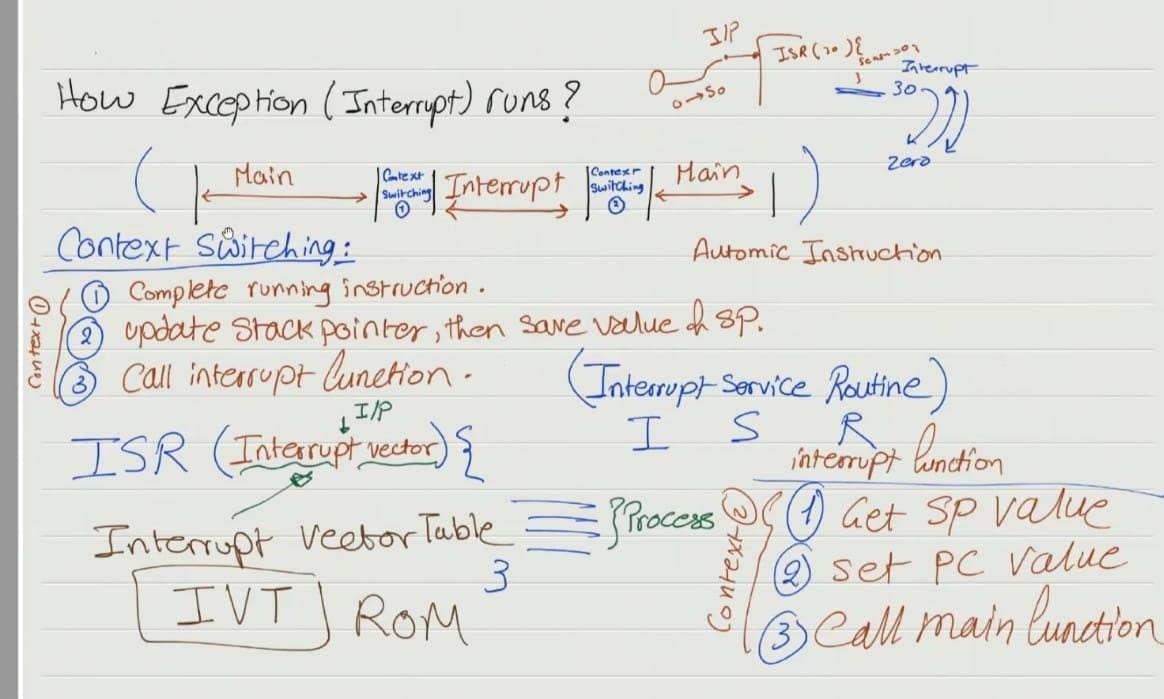 I/P
ISR(30){
Interrupt
0→50
}
30
How Exception (Interrupt) runs?
zero
( Main Context Switching ① Interrupt Context Switching ② Main )
Context Switching:
Automic Instruction
Context ①
① Complete running instruction.
② update Stack pointer, then save value of SP.
③ Call interrupt function.
(Interrupt Service Routine)
I/P
I S R
ISR (Interrupt vector) {
interrupt function
Interrupt Vector Table
} Process
}
IVT ROM
Context ②
① Get SP value
② set PC value
③ Call main function